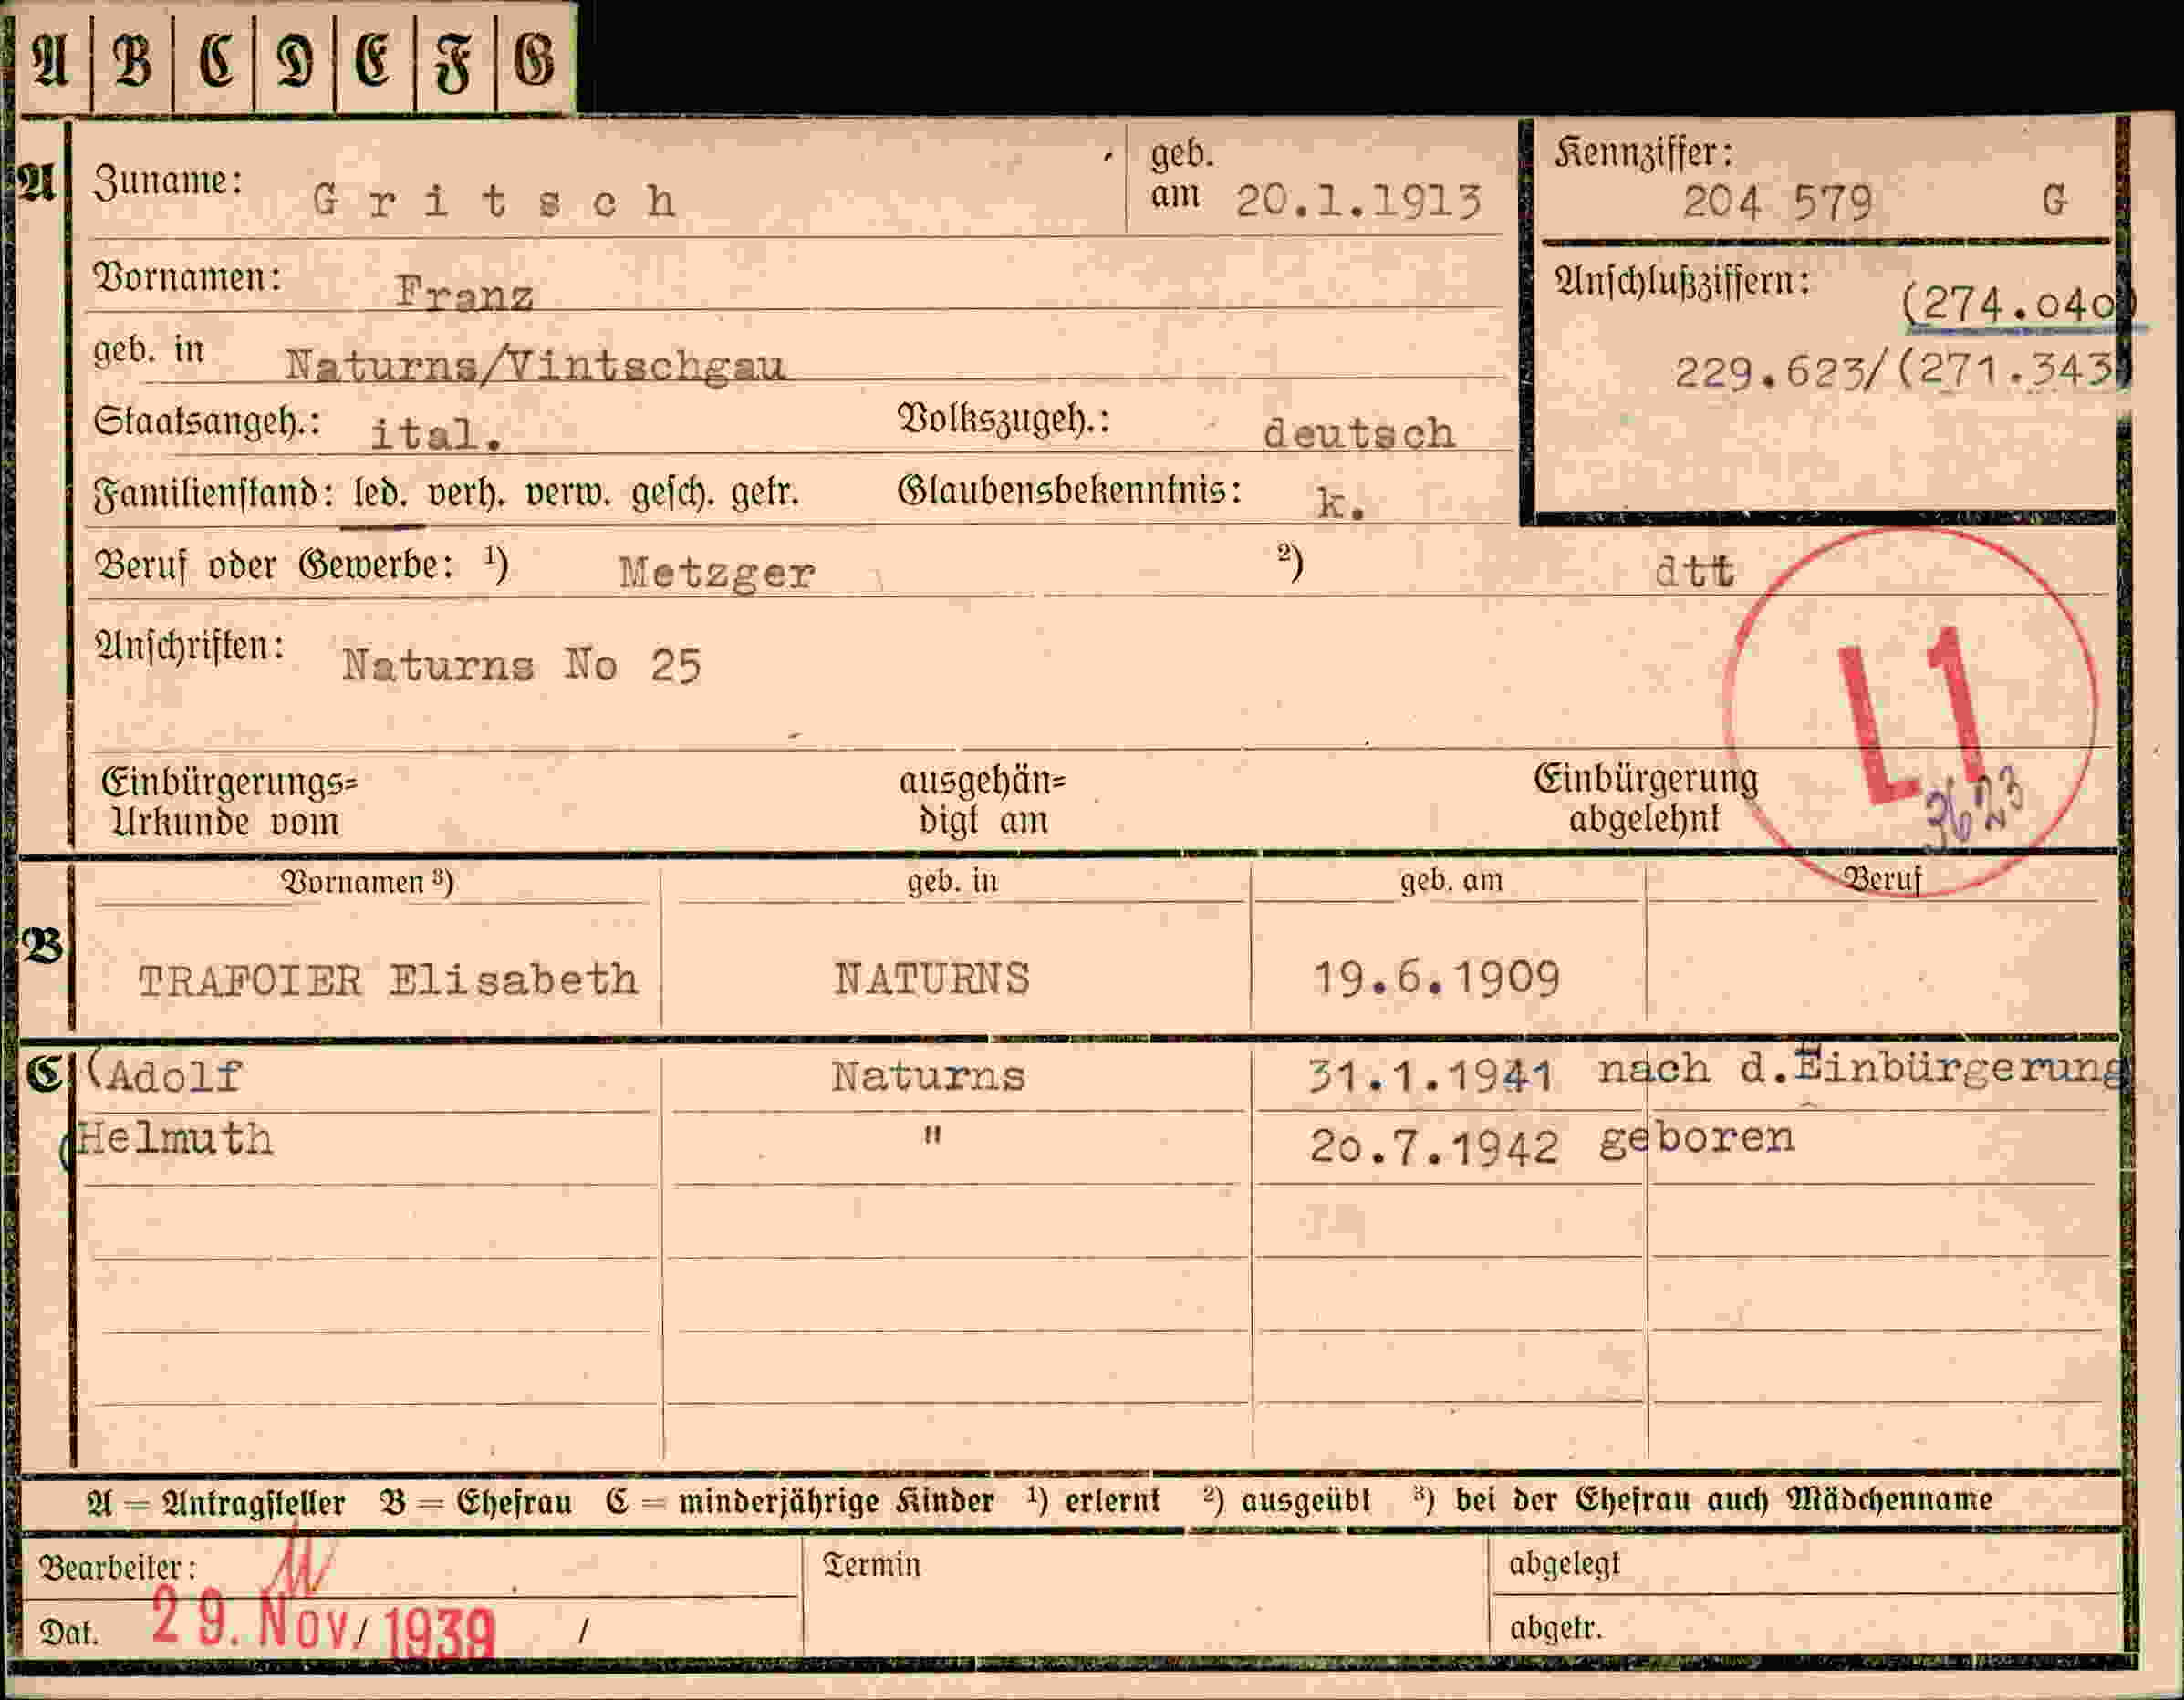 A B C D E F G
A Zuname: Gritsch geb. am 20.1.1913 Kennziffer: 204 579 G
Vornamen: Franz Anschlußziffern: (274.040)
geb. in Naturns/Vintschgau 229.623/(271.343)
Staatsangeh.: ital. Volkszugeh.: deutsch
Familienstand: led. verh. verw. gesch. getr. Glaubensbekenntnis: k.
Beruf oder Gewerbe: ¹) Metzger ²) dtt
Anschriften: Naturns No 25
L1
3623
Einbürgerungs= ausgehän= Einbürgerung
Urkunde vom digt am abgelehnt
Vornamen ³) geb. in geb. am Beruf
B TRAFOIER Elisabeth NATURNS 19.6.1909
C (Adolf Naturns 31.1.1941 nach d.Einbürgerung
(Helmuth " 20.7.1942 geboren
A = Antragsteller B = Ehefrau C = minderjährige Kinder ¹) erlernt ²) ausgeübt ³) bei der Ehefrau auch Mädchenname
Bearbeiter: Termin abgelegt
Dat. 29. Nov/ 1939 / abgetr.